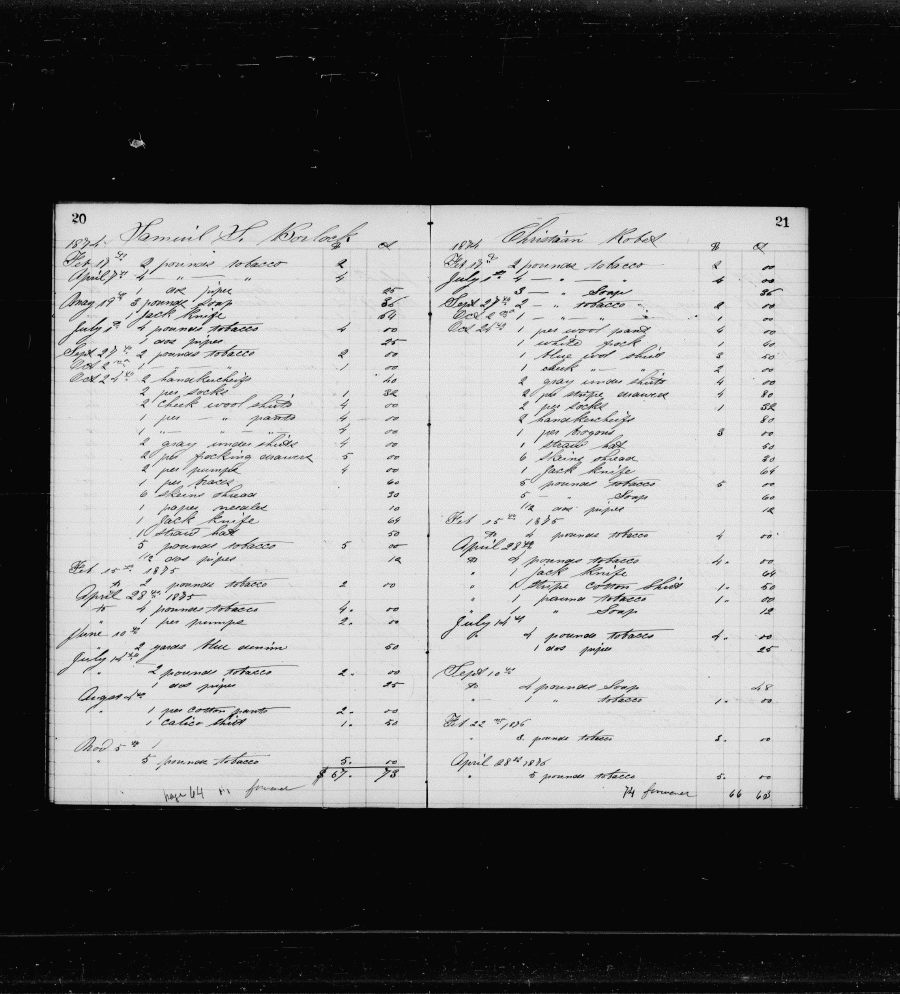 20
Samuel S.
1874. $ ct
Feb 17th 2 pounds tobacco 2
April 7th 4 — " 4
1 dos pipes 25
May 19th 3 pounds soap 36
1 Jack knife 64
July 1st 4 pounds tobacco 4 00
1 dos pipes 25
Sept 27th 2 pounds tobacco 2 00
Oct 2nd 1 — — 1 00
Oct 24th 2 handkercheifs 40
2 per socks 1 32
2 Check wool shirts 4 00
1 per — " pants 4 00
1 " — " — 4 00
2 gray under shirts 4 00
2 per frocking drawers 5 00
2 per pumps 4 00
1 per braces 60
6 skeins thread 30
1 paper needles 10
1 Jack knife 64
1 straw hat 50
5 pounds tobacco 5 00
1/2 dos pipes 12
Feb 15th 1875
to 2 pounds tobacco 2 00
April 28th 1875
to 4 pounds tobacco 4. 00
" 1 per pumps 2. 00
June 10th
" 2 yards blue denim 50
July 14th
" 2 pounds tobacco 2. 00
1 dos pipes 25
August 4th
" 1 per cotton pants 2. 00
1 calico shirt 1. 50
Nov 5th
" 5 pounds tobacco 5. 00
$ 67. 73
page 64
21
Christian
1874 $ ct
Feb 17th 2 pounds tobacco 2 00
July 1st 4 — " — " 4 00
3 — " Soap 36
Sept 27th 2 — " tobacco " 2 00
Oct 2nd 1 — " — " 1 00
Oct 24th 1 per wool pant 4 00
1 white frock 1 40
1 blue wool shirt 3 50
1 check " — " 2 00
2 gray under shirts 4 00
2 per stripe drawers 4 80
2 per socks 1 32
2 handkercheifs 80
1 per brogans 3 00
1 straw hat 50
6 skeins thread 30
1 Jack knife 64
5 pounds tobacco 5 00
5 — " Soap 60
1/2 dos pipes 12
Feb 15th 1875
to 4 pounds tobacco 4 00
April 28th
to 4 pounds tobacco 4. 00
" 1 Jack knife 64
" 1 stripe cotton Shirt 1. 50
" 1 pound tobacco 1. 00
" 1 " Soap 12
July 14th
4 pounds tobacco 4. 00
1 dos pipes 25
Sept 10th
to 4 pounds Soap 48
1 " tobacco 1. 00
Feb 22nd 1876
" 3 pounds tobacco 3. 00
April 28th 1876
" 5 pounds tobacco 5. 00
74 66 63